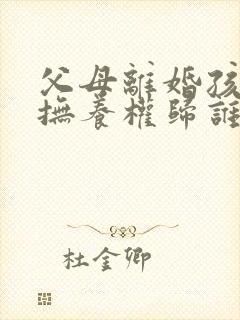 父母離婚孩
撫養權歸誰
杜金卿